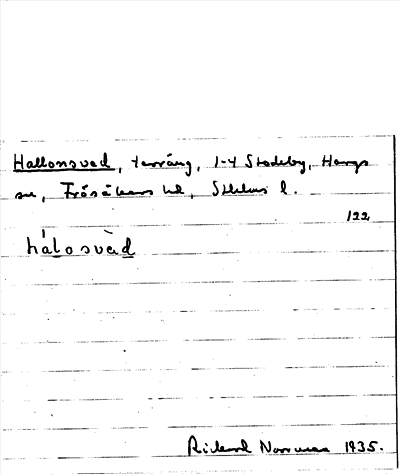 Hallonsved, terräng, 1-4 Stadeby, Hargs
sn, Frösåkers hd, Sthlms l.
122
hálosvèd
Rickard Norrman 1935.